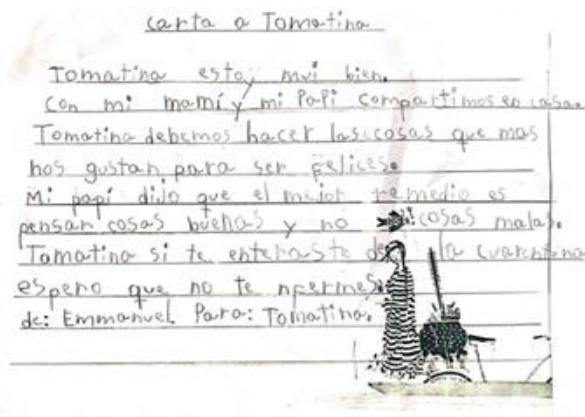 carta a Tomatina
Tomatina estoy mui bien.
con mi mamí y mi Papi compartimos en casa.
Tomatina debemos hacer las cosas que mas
nos gustan para ser felices.
Mi papí dijo que el mejor remedio es
pensar cosas buenas y no cosas malas.
Tomatina si te enteraste de la cuarentena
espero que no te nfermes.
de: Emmanuel. Para: Tomatina.